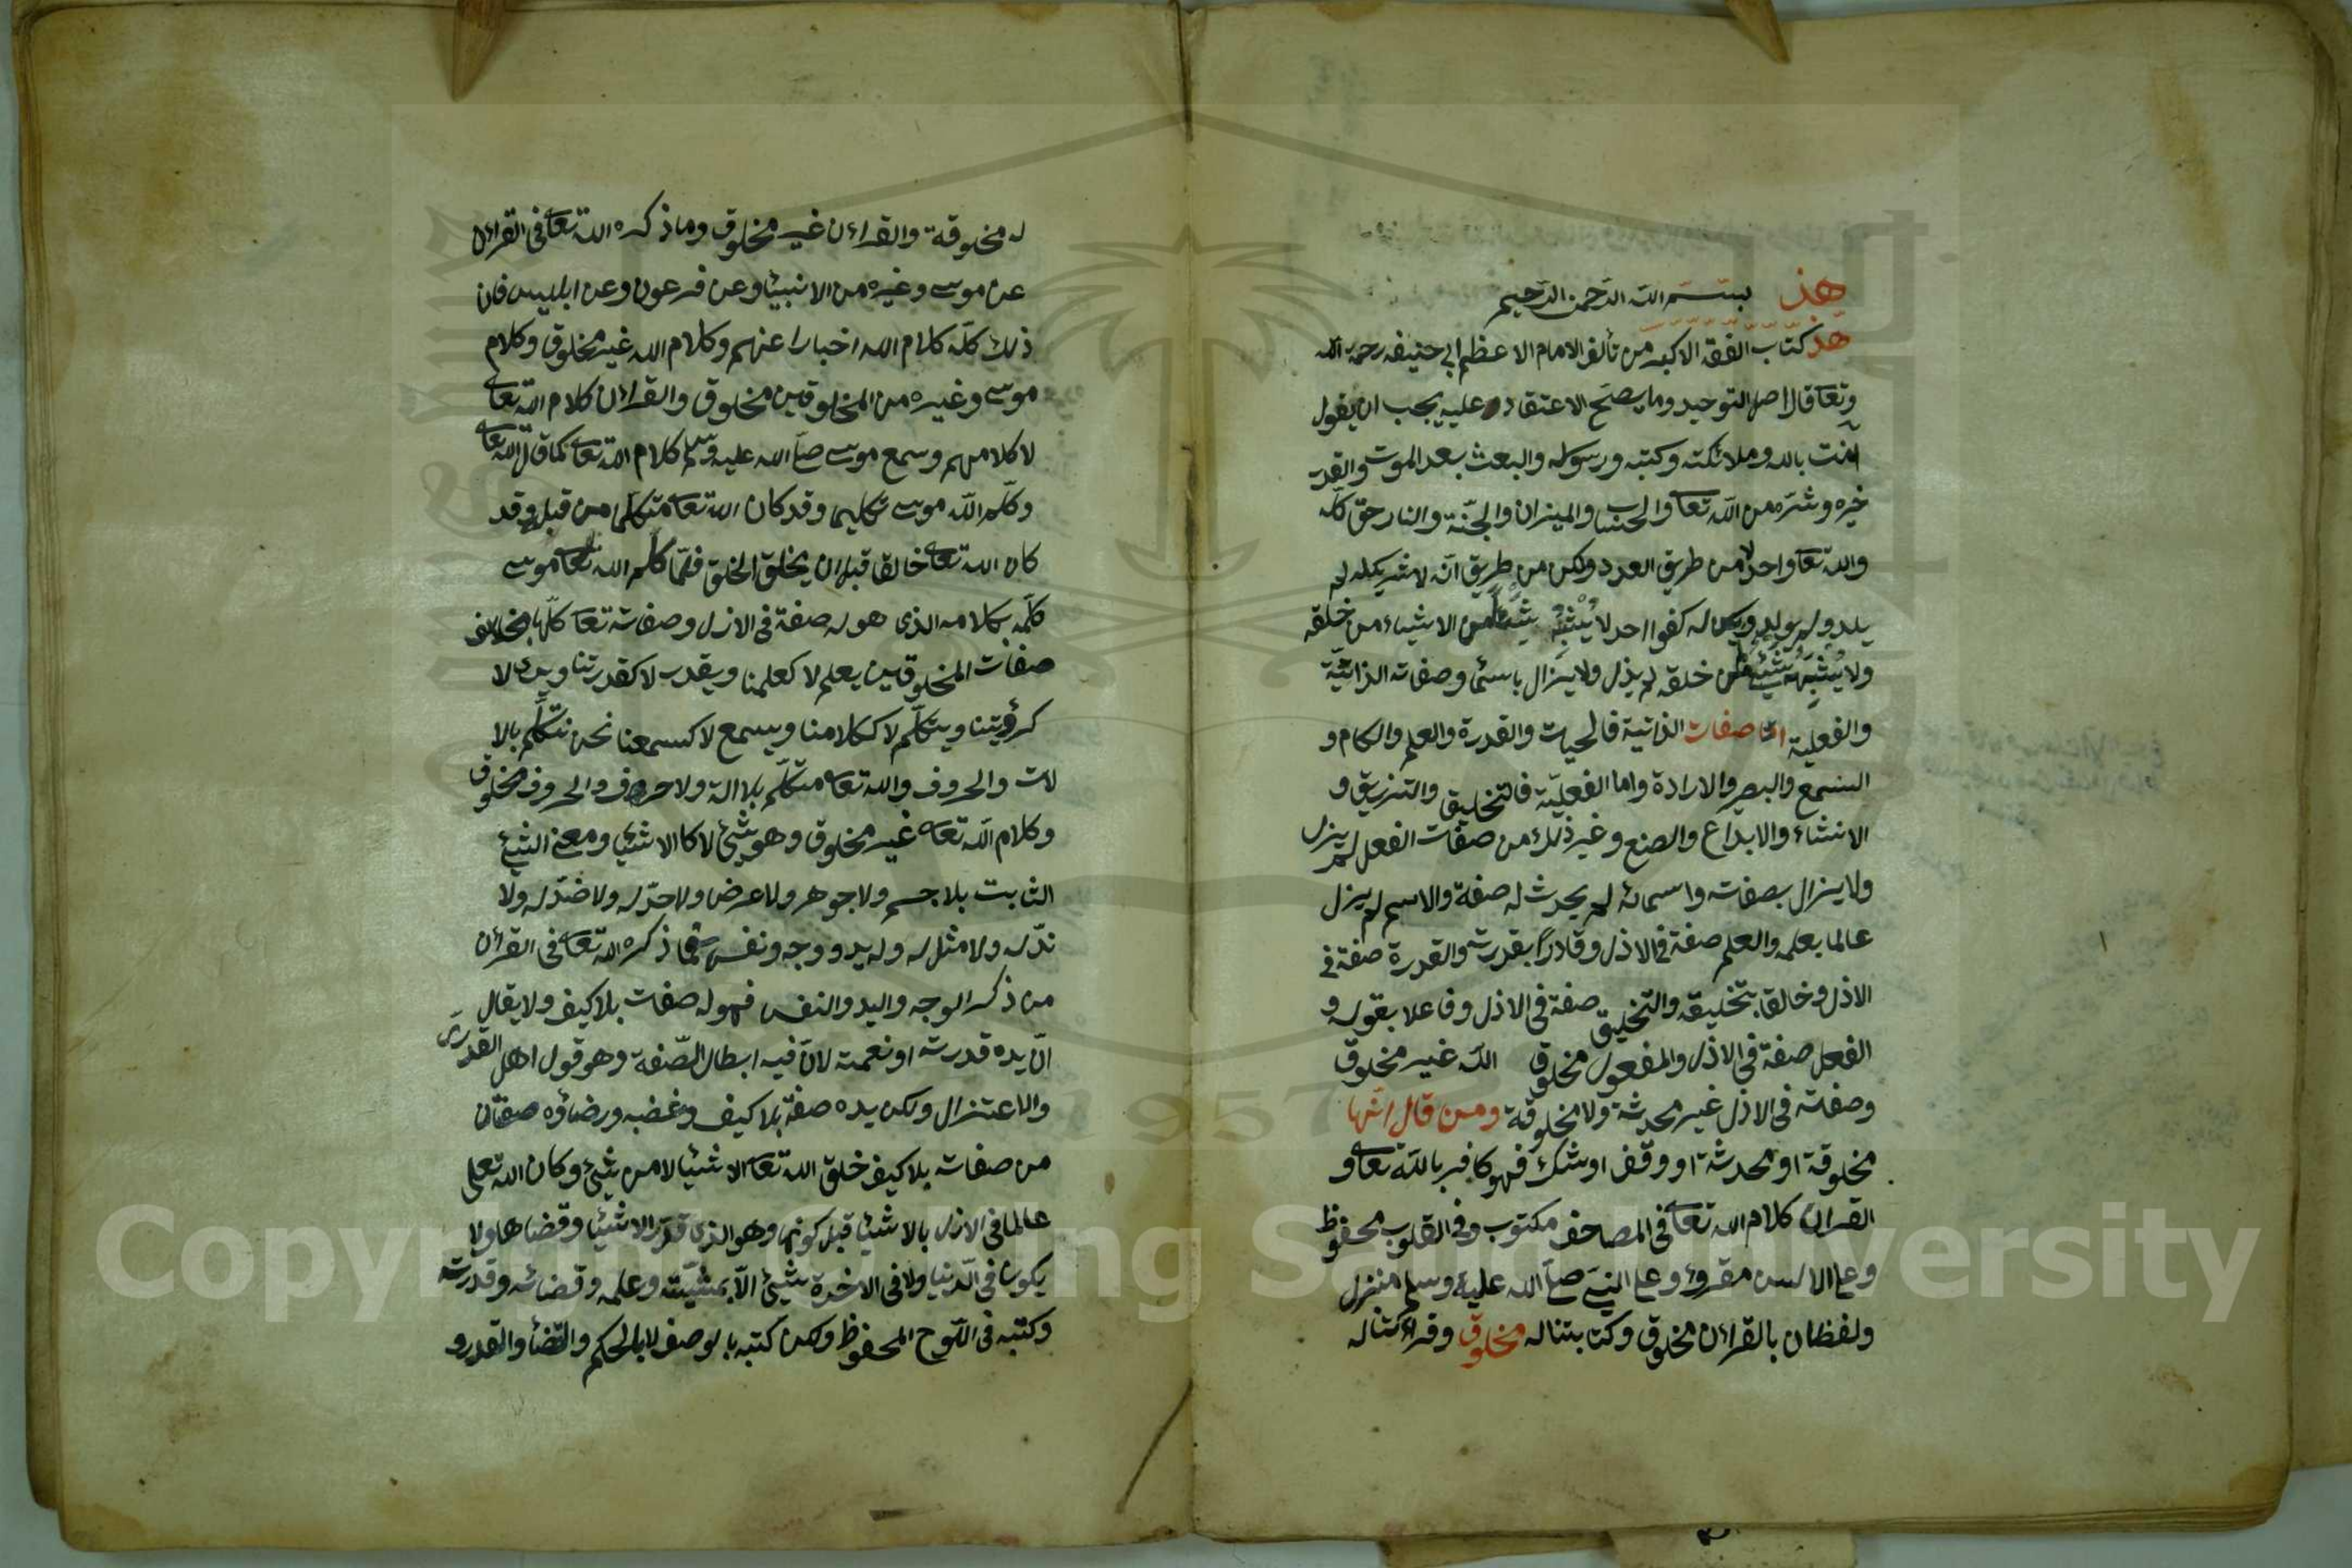 هذ بسم الله الرحمن الرحيم
هذ كتاب الفقه الاكبر من تألف الامام الاعظم ابى حنيفه رحمة الله
وتعا قال اصل التوحيد وما يصحّ الاعتقاد عليه يجب ان يقول
امنت بالله وملائكته وكتبه ورسوله والبعث بعد الموت والقدر
خيره وشرّه من الله تعا والحساب والميزان والجنّة والنار حق كله
والله تعا واحد لا من طريق العدد ولكن من طريق انّه لا شريك له لم
يلد ولم يولد ويكن له كفوا احد لا يُشْبِهُ شيئا من الاشياء من خلقه
ولا يُشْبِهُه شيئ من خلقه لم يذل ولا يزال باسمٔا وصفاته الذاتيّة
والفعلية امّا صفات الذاتية فالحيات والقدرة والعلم والكلام و
السمع والبصر والارادة واما الفعليّة فالتخليق والتنزيق و
الانشاء والابداع والصنع وغير ذلك من صفات الفعل لم يزل
ولا يزال بصفاته واسمائه لم يحدث له صفة والاسم لم يزل
عالما بعلمه والعلم صفة فى الاذل وقادرًا بقدرته والقدرة صفة فى
الاذل وخالقا بتخليقه والتخليق صفة فى الاذل وفاعلا بقوله و
الفعل صفة فى الاذل والمفعول مخلوق الله غير مخلوق
وصفته فى الاذل غير محدثة ولا مخلوقة ومن قال انّها
مخلوقة او محدثة او وقف او شك فهو كافر بالله تعا و
القران كلام الله تعا فى المصاحف مكتوب وفى القلوب محفوظ
وعلى الالسن مقروء وعلى النبى صلّى الله عليه وسلم منزل
ولفظان بالقراٰن مخلوق وكتابتنا له مخلوق وقرائتنا له
له مخلوقة والقراٰن غير مخلوق وما ذكره الله تعا فى القراٰن
عن موسى وغيره من الانبئا وعن فرعون وعن ابليس فان
ذلك كلّه كلام الله اخبارا عنهم وكلام الله غير مخلوق وكلام
موسى وغيره من المخلوقين مخلوق والقراٰن كلام الله تعا
لا كلامهم وسمع موسى صلّى الله عليه وسلم كلام الله تعا كما قال الله تعا
وكلّم اللّه موسى تكليما وقد كان الله تعا متكلّما من قبل وقد
كان الله تعا خالقا قبل ان يخلق الخلق فلمّا كلّم الله تعا موسى
كلّمه بكلامه الذى هو له صفة فى الازل وصفاته تعا كلّها بخلاف
صفات المخلوقين يعلم لا كعلمنا ويقدر لا كقدرتنا ويرى لا
كرؤيتنا ويتكلّم لا ككلامنا ويسمع لا كسمعنا نحن نتكلّم بالا
لات والحروف والله تعا متكلّم بلا الة ولا حروف والحروف مخلوق
وكلام اللّه تعا غير مخلوق وهو شئ لا كا الاشئا ومعنى الشئ
الثابت بلا جسم ولا جوهر ولا عرض ولا حدّ له ولا ضدّ له ولا
ندّ له ولا مثل له وله يد ووجه ونفس فما ذكره الله تعا فى القراٰن
من ذكر الوجه واليد والنفس فهو له صفات بلا كيف ولا يقال
انّ يده قدرته او نعمته لانّ فيه ابطال الصّفة وهو قول اهل القدرى
والاعتزال ولكن يده صفة بلا كيف وغضبه ورضاؤه صفتان
من صفاته بلا كيف خلق الله تعا الاشئا لا من شئ وكان الله تعلى
عالما فى الازل بالاشئا قبل كونها وهو الذى قدّر الاشئا وقضاها ولا
يكون فى الدّنيا ولا فى الاخرة شئ الّا بمشيّته وعلمه وقضائه وقدرته
وكتبه فى اللّوح المحفوظ ولكن كتبه بالوصف لا بالحكم والقضٔا والقدر و
Copyright © King Saud University
1957